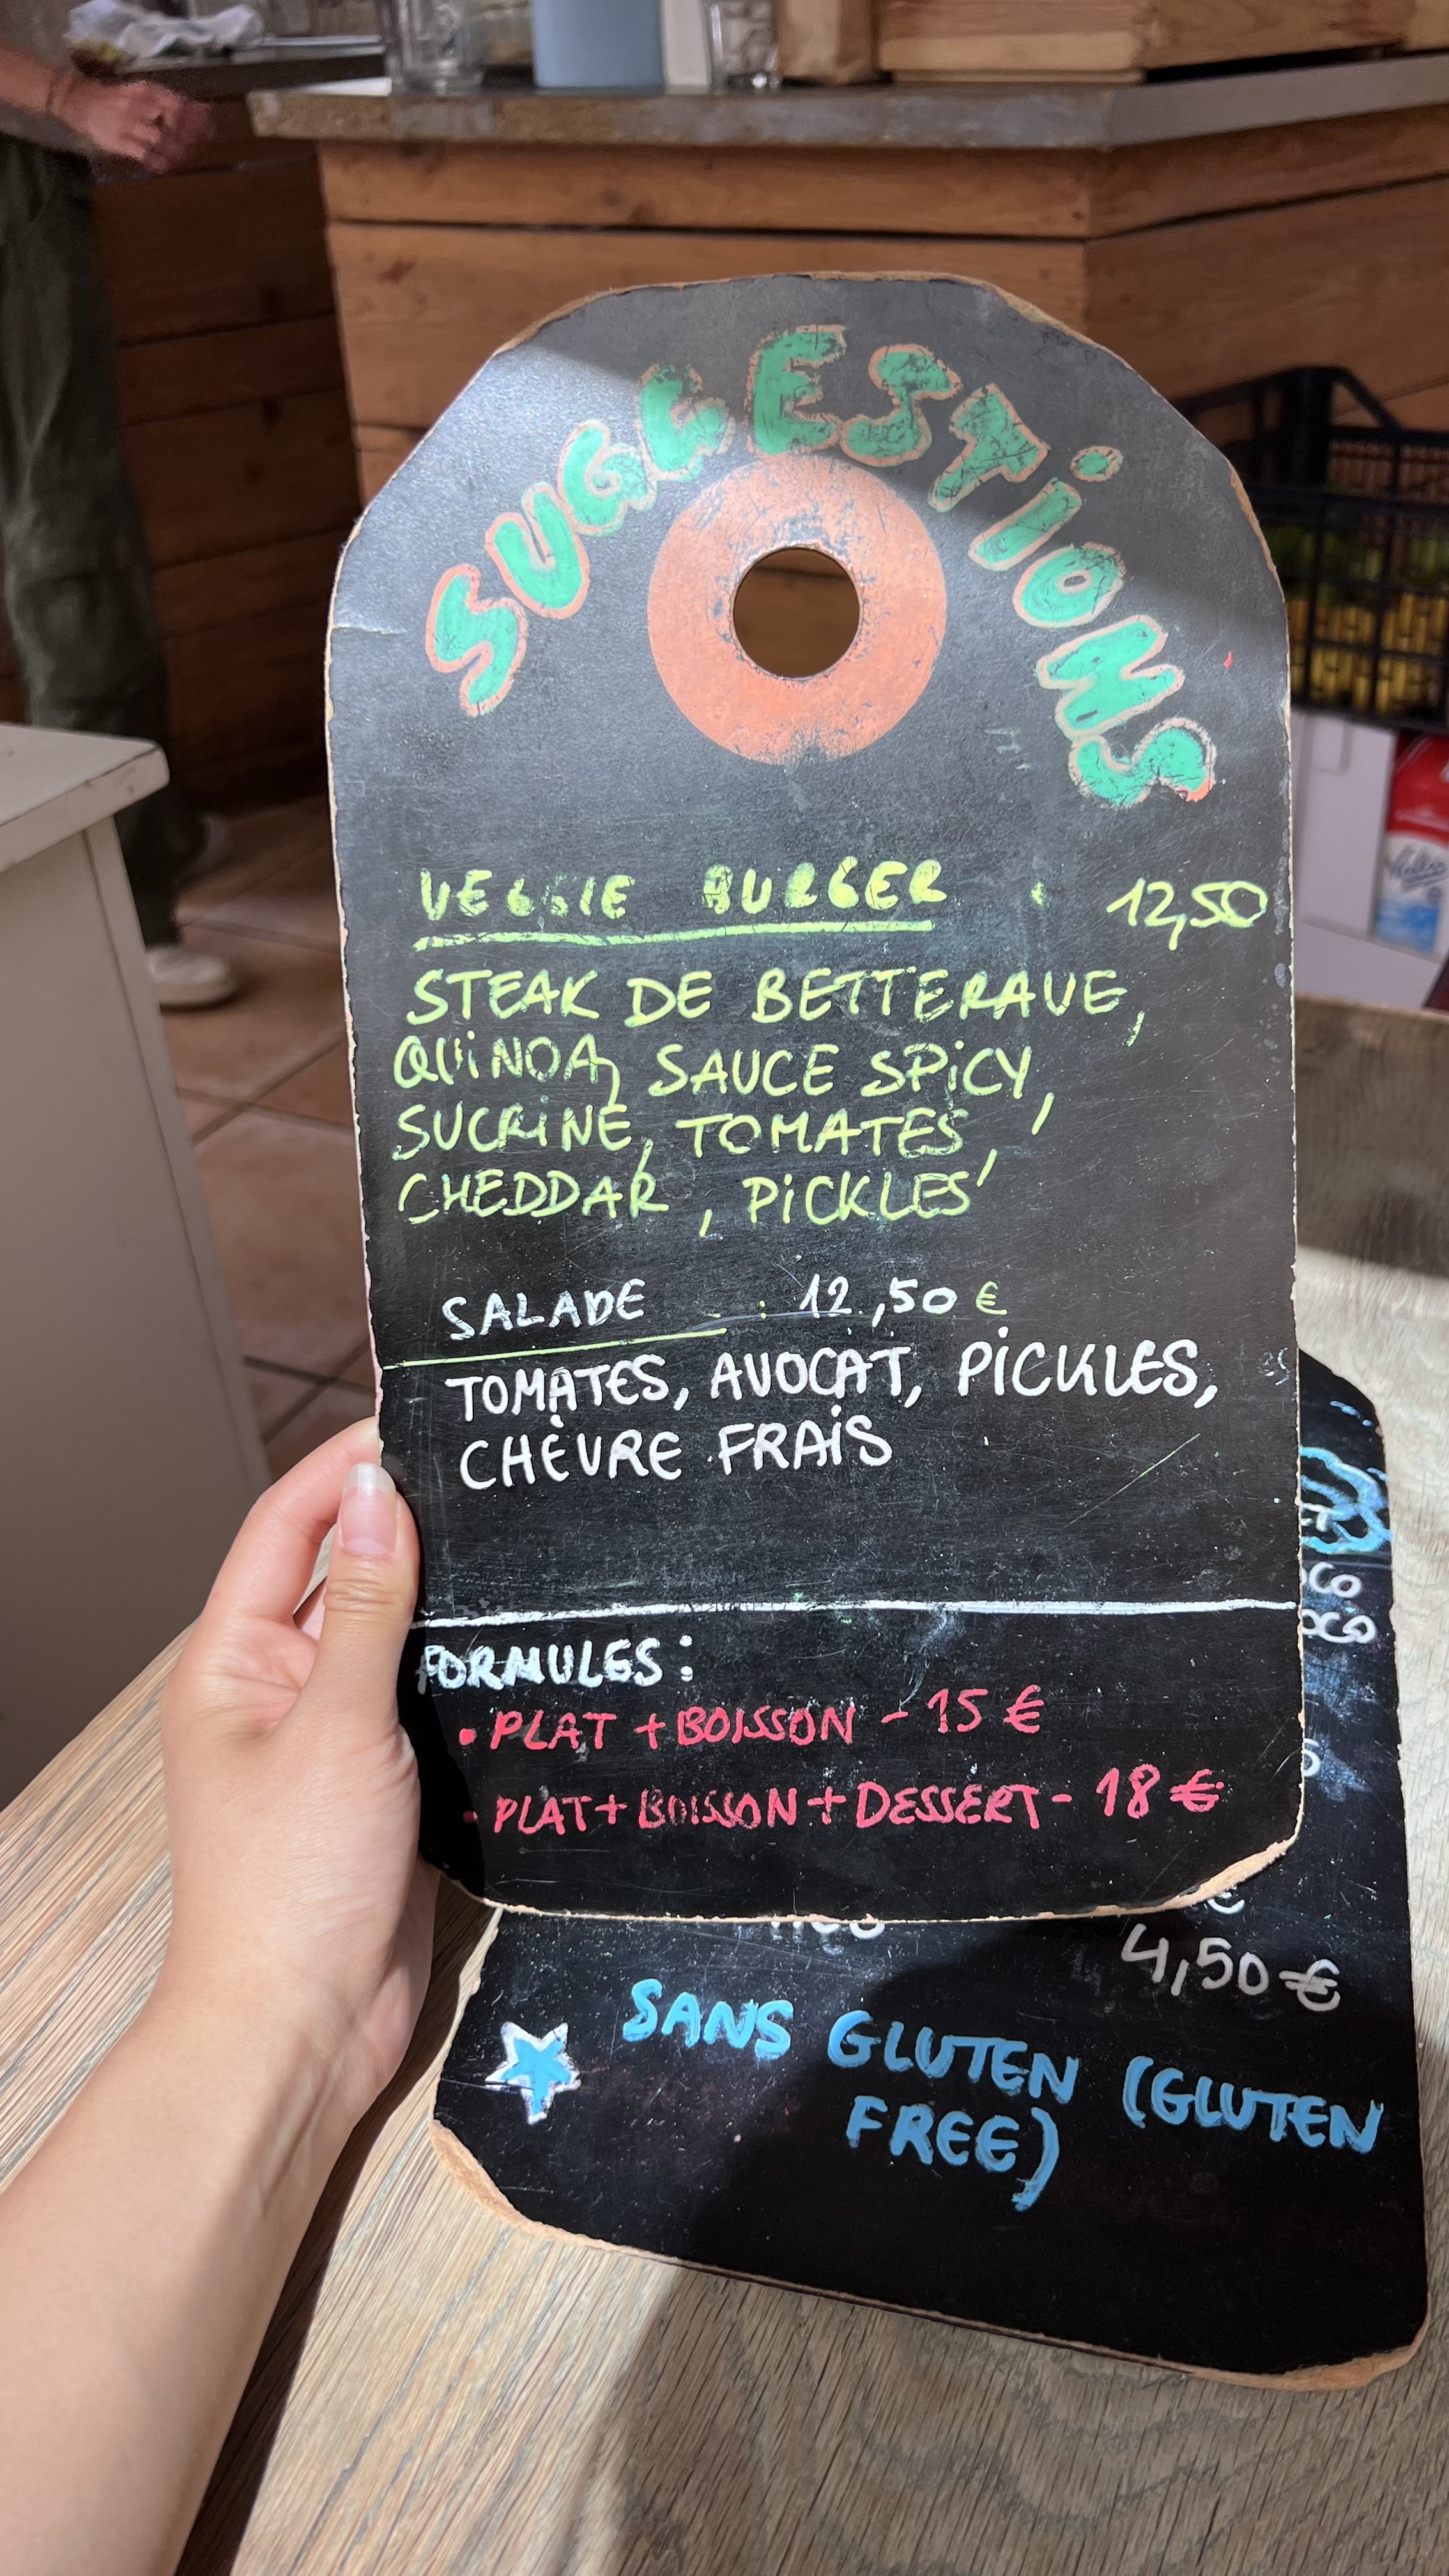 SUGGESTIONS
VEGGIE BURGER : 12,50
STEAK DE BETTERAVE,
QUINOA, SAUCE SPICY,
SUCRINE, TOMATES,
CHEDDAR, PICKLES
SALADE : 12,50 €
TOMATES, AVOCAT, PICKLES,
CHÈVRE FRAIS
FORMULES :
• PLAT + BOISSON - 15 €
• PLAT + BOISSON + DESSERT - 18 €
4,50 €
SANS GLUTEN (GLUTEN
FREE)